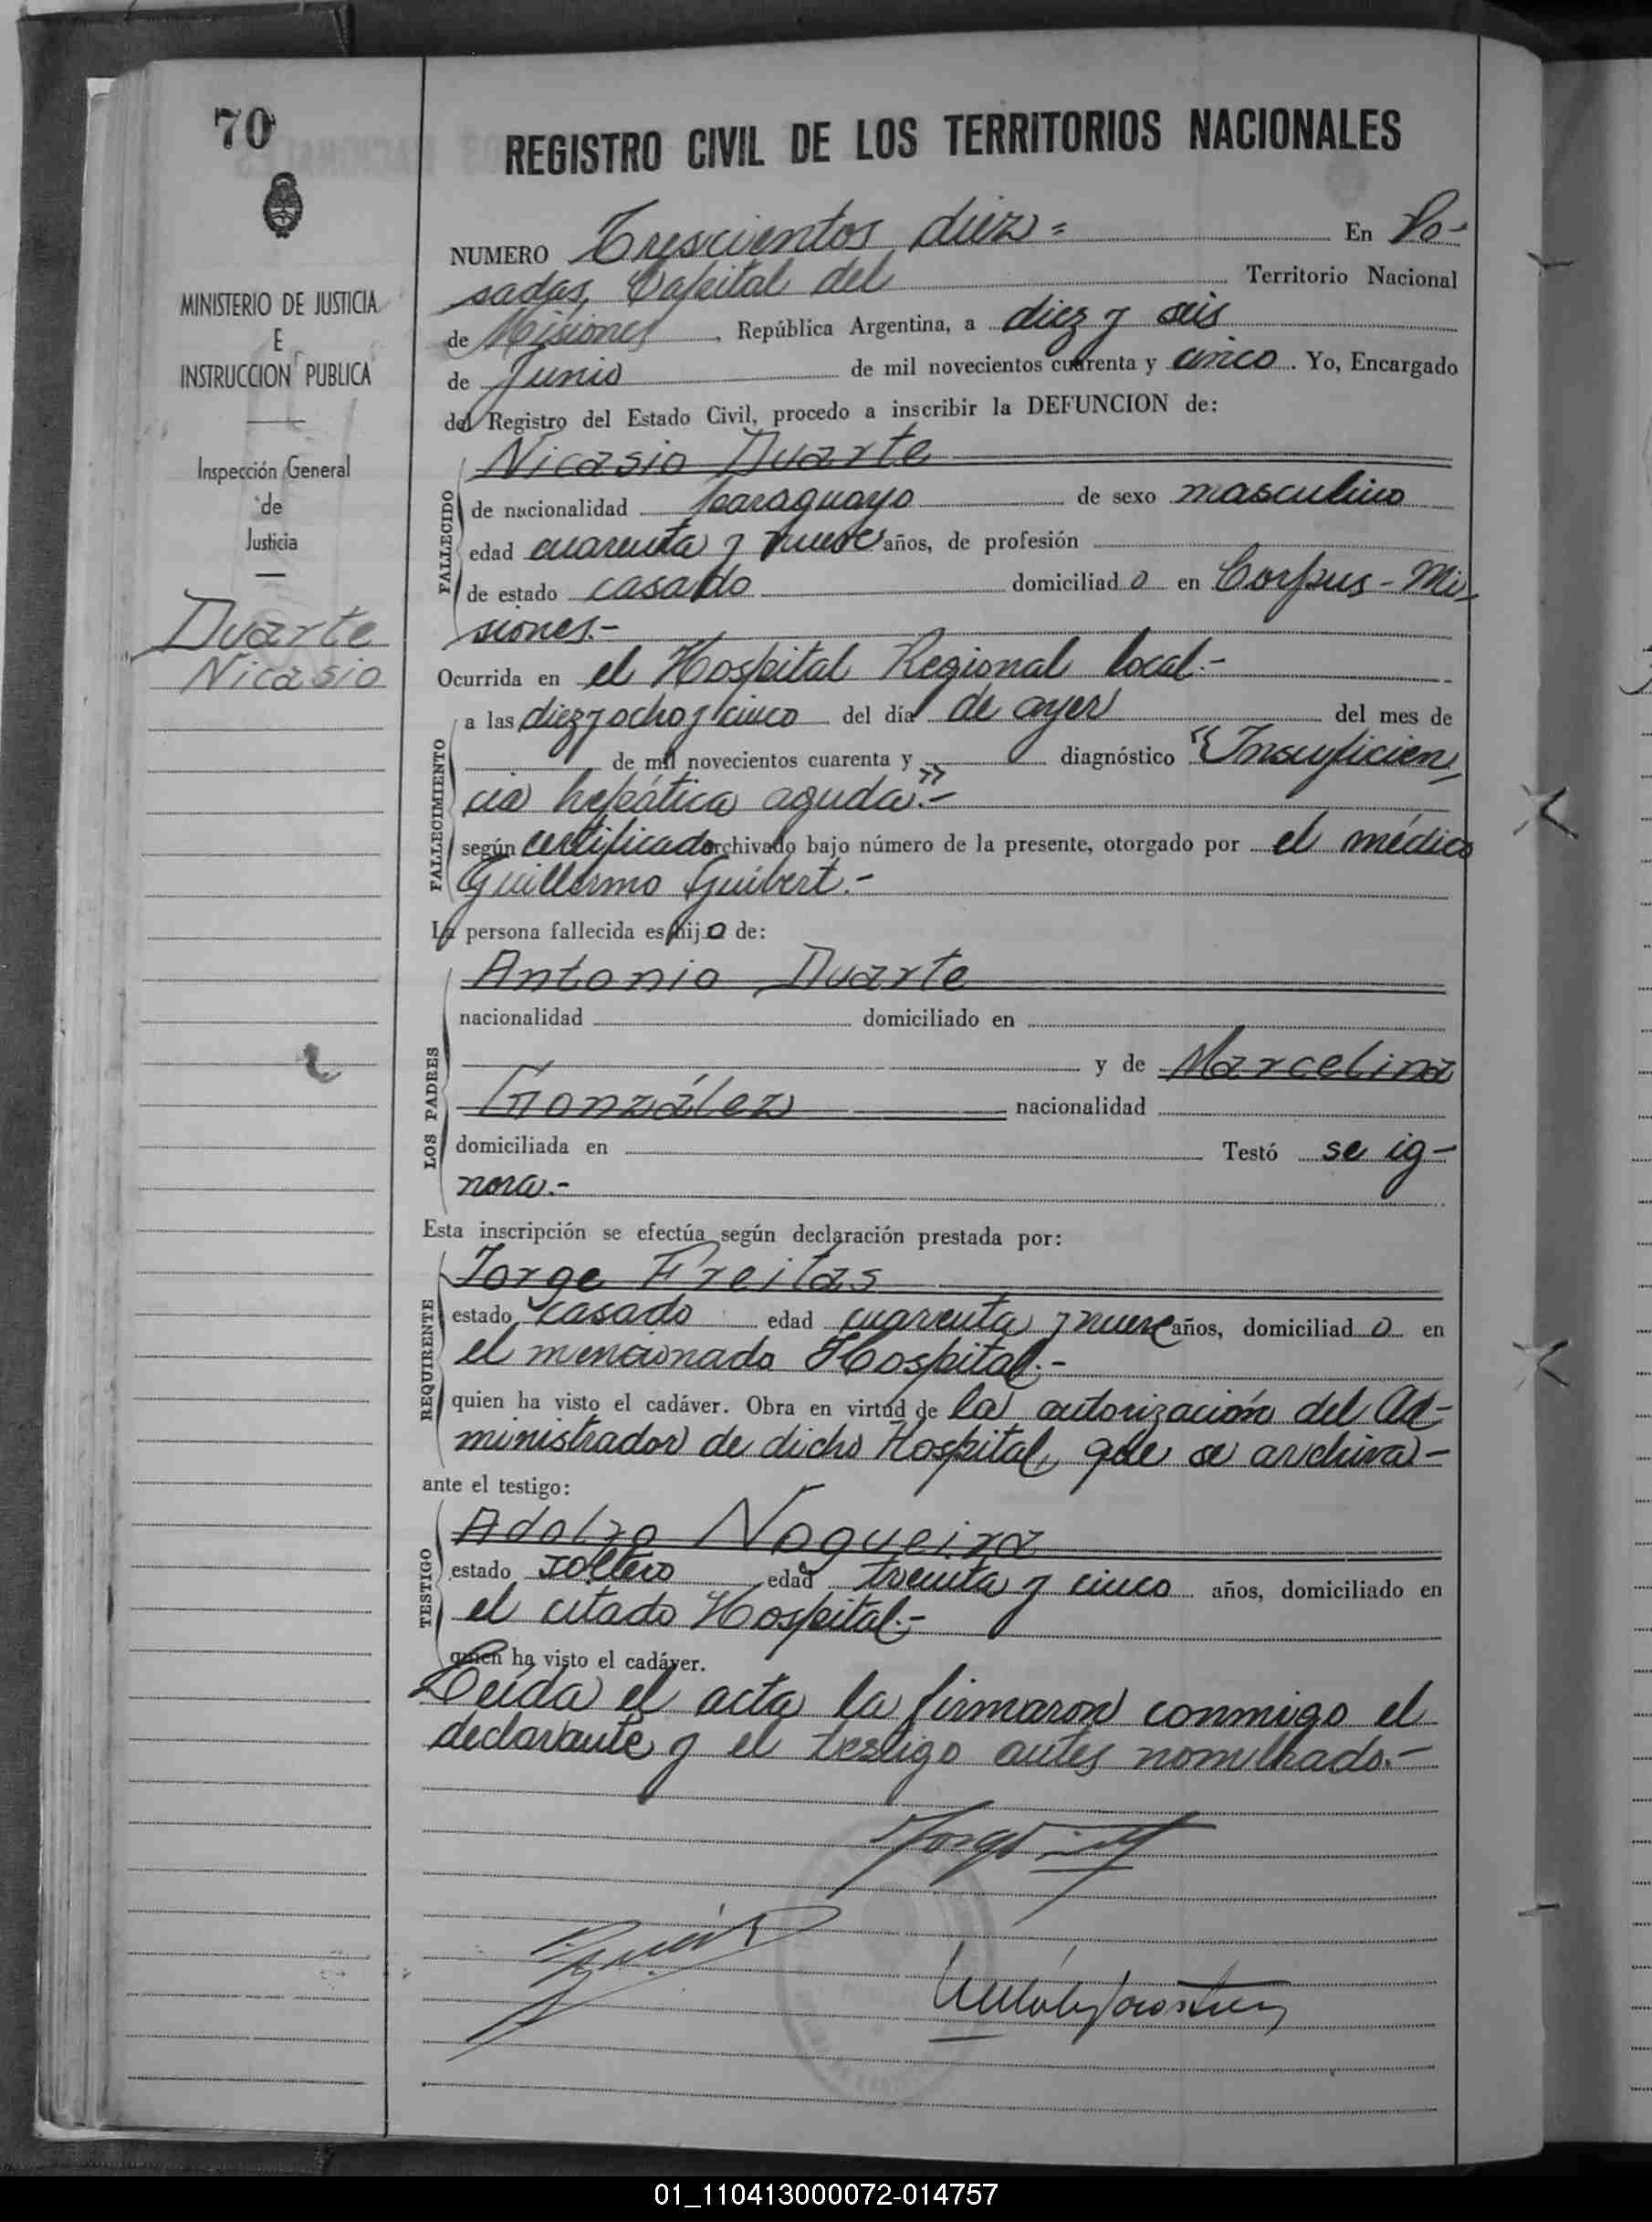 70
REGISTRO CIVIL DE LOS TERRITORIOS NACIONALES
MINISTERIO DE JUSTICIA
E
INSTRUCCION PUBLICA
Inspección General
de
Justicia
Duarte
Nicasio
NUMERO Trescientos diez = En Po-
sadas, Capital del Territorio Nacional
de Misiones, República Argentina, a diez y seis
de Junio de mil novecientos cuarenta y cinco. Yo, Encargado
del Registro del Estado Civil, procedo a inscribir la DEFUNCION de:
Nicasio Duarte
FALLECIDO
de nacionalidad paraguayo de sexo masculino
edad cuarenta y nueve años, de profesión
de estado casado domiciliado en Corpus - Mi-
siones.-
Ocurrida en el Hospital Regional local.-
FALLECIMIENTO
a las diez y ocho y cinco del día de ayer del mes de
de mil novecientos cuarenta y diagnóstico "Insuficien-
cia hepática aguda".-
según certificado archivado bajo número de la presente, otorgado por el médico
Guillermo Guibert.-
La persona fallecida es hijo de:
LOS PADRES
Antonio Duarte
nacionalidad domiciliado en
y de Marcelina
González nacionalidad
domiciliada en Testó se ig-
nora.-
Esta inscripción se efectúa según declaración prestada por:
REQUIRENTE
Jorge Freitas
estado casado edad cuarenta y nueve años, domiciliado en
el mencionado Hospital.-
quien ha visto el cadáver. Obra en virtud de la autorización del Ad-
ministrador de dicho Hospital, que se archiva-
ante el testigo:
TESTIGO
Adolfo Nogueira
estado soltero edad treinta y cinco años, domiciliado en
el citado Hospital.-
quien ha visto el cadáver.
Leída el acta la firmaron conmigo el
declarante y el testigo antes nombrado.-
01_110413000072-014757